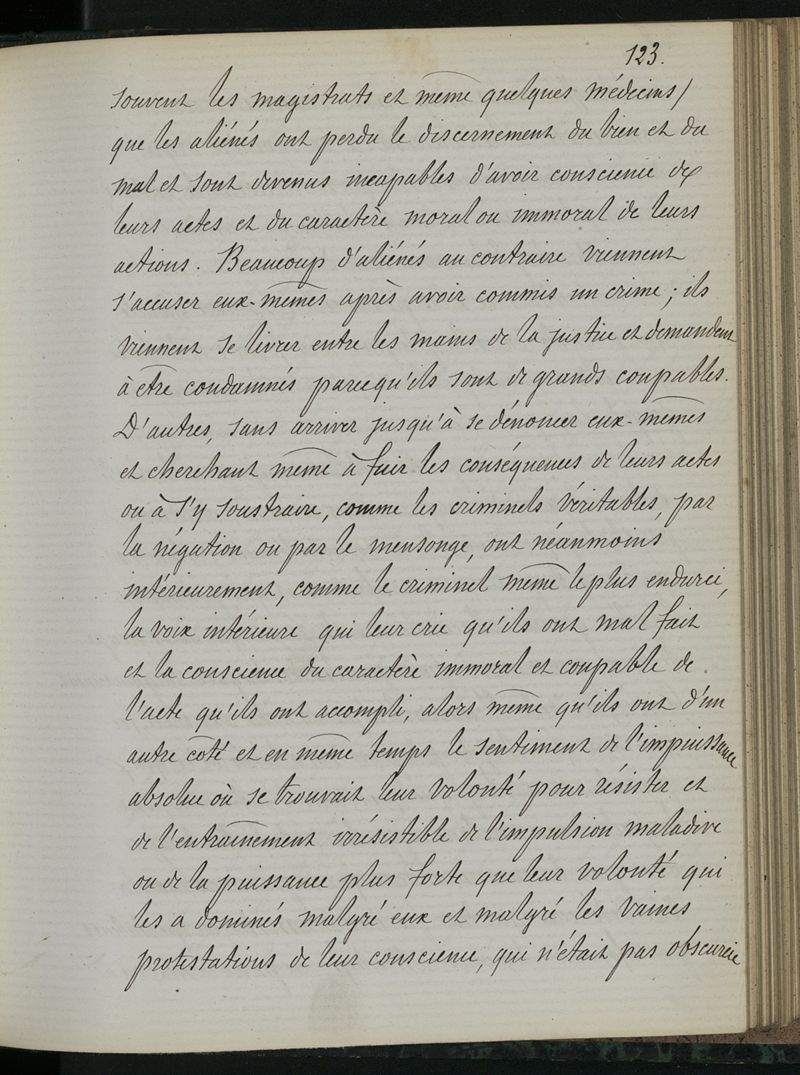 123.
souvent les magistrats et même quelques médecins)
que les aliénés ont perdu le discernement du bien et du
mal et sont devenus incapables d'avoir conscience de
leurs actes et du caractère moral ou immoral de leurs
actions. Beaucoup d'aliénés au contraire viennent
s'accuser eux-mêmes après avoir commis un crime; ils
viennent se livrer entre les mains de la justice et demandent
à être condamnés parcequ'ils sont de grands coupables.
D'autres, sans arriver jusqu'à se dénoncer eux-mêmes
et cherchant même à fuir les conséquences de leurs actes
ou à s'y soustraire, comme les criminels véritables, par
la négation ou par le mensonge, ont néanmoins
intérieurement, comme le criminel même le plus endurci,
la voix intérieure qui leur crie qu'ils ont mal fait
et la conscience du caractère immoral et coupable de
l'acte qu'ils ont accompli, alors même qu'ils ont d'un
autre coté et en même temps le sentiment de l'impuissance
absolue où se trouvait leur volonté pour résister et
de l'entraînement irrésistible de l'impulsion maladive
ou de la puissance plus forte que leur volonté qui
les a dominés malgré eux et malgré les vaines
protestations de leur conscience, qui n'était pas obscurcie